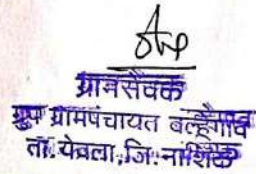 ग्रामसेवक
ग्रुप ग्रामपंचायत बल्हेगांव
ता. येवला, जि. नाशिक